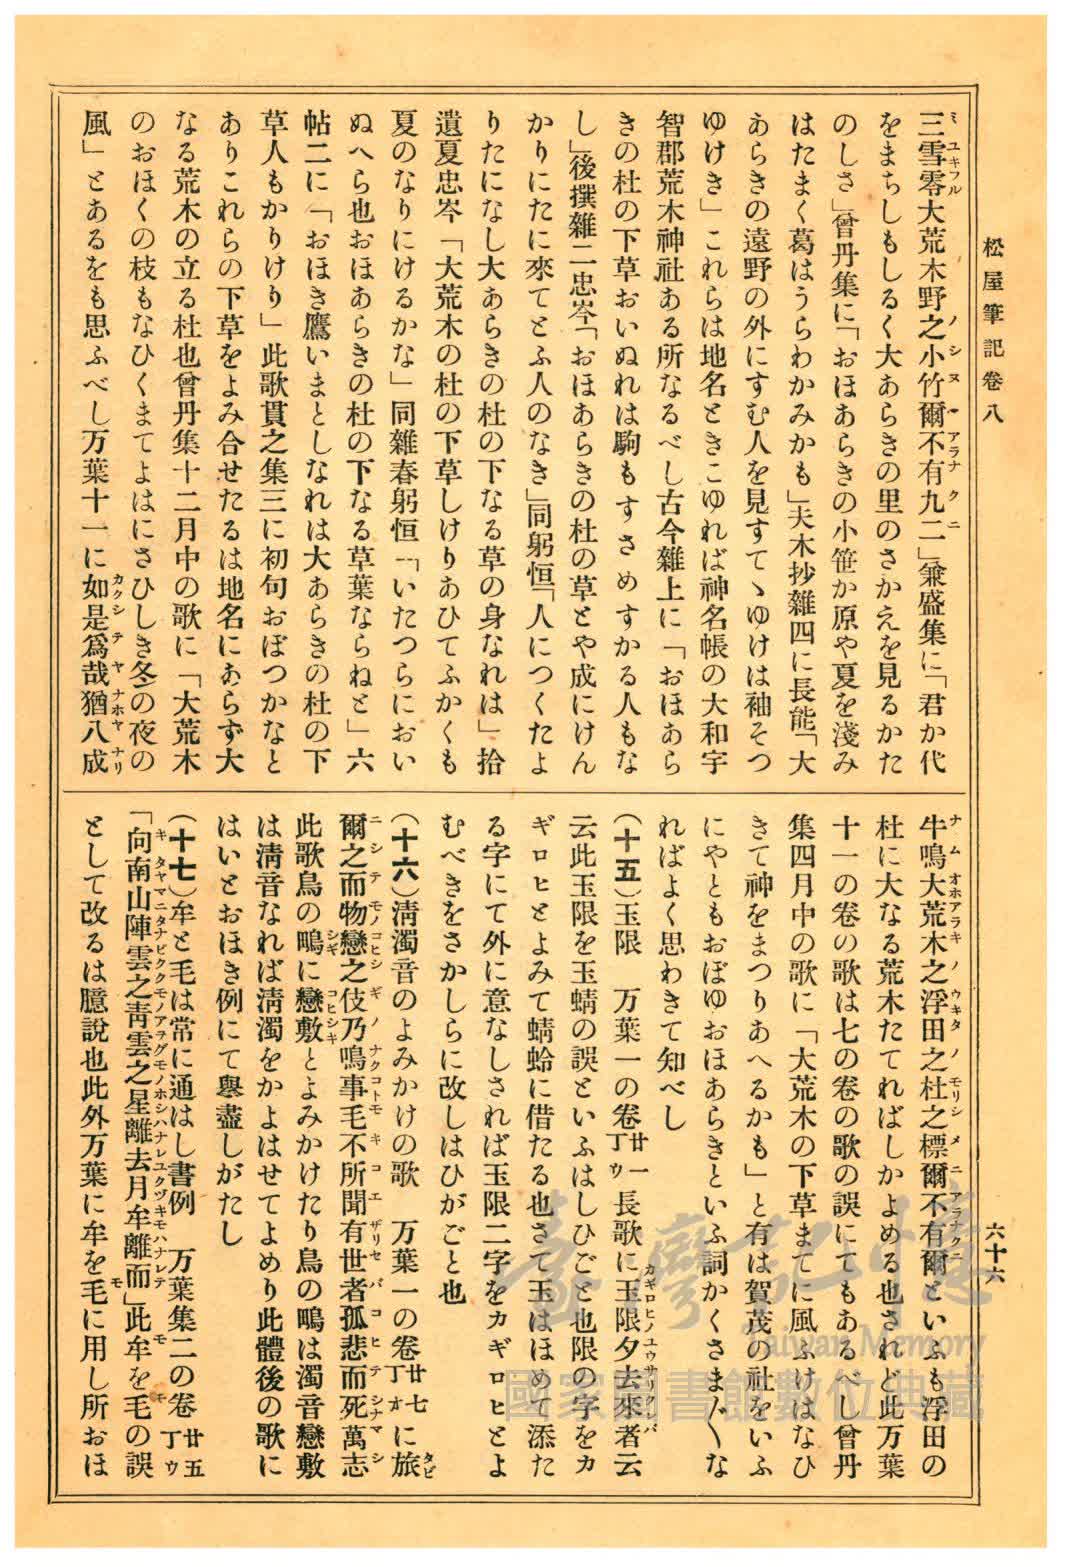 松屋筆記卷八
六十六
三雪零大荒木野之小竹爾不有九二」兼盛集に「君か代
をまちしもしるく大あらきの里のさかえを見るかた
のしさ」曾丹集に「おほあらきの小笹か原や夏を淺み
はたまく葛はうらわかみかも」夫木抄雜四に長能「大
あらきの遠野の外にすむ人を見すてゝゆけは袖そつ
ゆけき」これらは地名ときこゆれば神名帳の大和宇
智郡荒木神社ある所なるべし古今雜上に「おほあら
きの杜の下草おいぬれは駒もすさめすかる人もな
し」後撰雜二忠岑「おほあらきの杜の草とや成にけん
かりにたに來てとふ人のなき」同躬恒「人につくたよ
りたになし大あらきの杜の下なる草の身なれは」拾
遺夏忠岑「大荒木の杜の下草しけりあひてふかくも
夏のなりにけるかな」同雜春躬恒「いたつらにおい
ぬへら也おほあらきの杜の下なる草葉ならねと」六
帖二に「おほき鷹いまとしなれは大あらきの杜の下
草人もかりけり」此歌貫之集三に初句おぼつかなと
ありこれらの下草をよみ合せたるは地名にあらず大
なる荒木の立る杜也曾丹集十二月中の歌に「大荒木
のおほくの枝もなひくまてよはにさひしき冬の夜の
風」とあるをも思ふべし万葉十一に如是爲哉猶八成
牛鳴大荒木之浮田之杜之標爾不有爾といふも浮田の
杜に大なる荒木たてればしかよめる也されど此万葉
十一の卷の歌は七の卷の歌の誤にてもあるべし曾丹
集四月中の歌に「大荒木の下草まてに風ふけはなひ
きて神をまつりあへるかも」と有は賀茂の社をいふ
にやともおぼゆおほあらきといふ詞かくさま〴〵な
ればよく思わきて知べし
(十五)玉限　万葉一の卷廿一丁ウ長歌に玉限夕去來者云
云此玉限を玉蜻の誤といふはしひごと也限の字をカ
ギロヒとよみて蜻蛉に借たる也さて玉はほめて添た
る字にて外に意なしされば玉限二字をカギロヒとよ
むべきをさかしらに改しはひがごと也
(十六)淸濁音のよみかけの歌　万葉一の卷廿七丁オに旅
爾之而物戀之伎乃鳴事毛不所聞有世者孤悲而死萬志
此歌鳥の鴫に戀敷とよみかけたり鳥の鴫は濁音戀敷
は淸音なれば淸濁をかよはせてよめり此體後の歌に
はいとおほき例にて擧盡しがたし
(十七)牟と毛は常に通はし書例　万葉集二の卷廿五丁ウ
「向南山陣雲之靑雲之星離去月牟離而」此牟を毛の誤
として改るは臆說也此外万葉に牟を毛に用し所おほ
臺灣記憶
Taiwan Memory
國家圖書館數位典藏